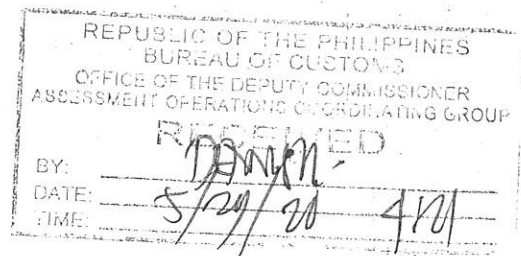 REPUBLIC OF THE PHILIPPINES
BUREAU OF CUSTOMS
OFFICE OF THE DEPUTY COMMISSIONER
ASSESSMENT OPERATIONS COORDINATING GROUP
RECEIVED
BY:
DATE: 5/29/20
TIME: